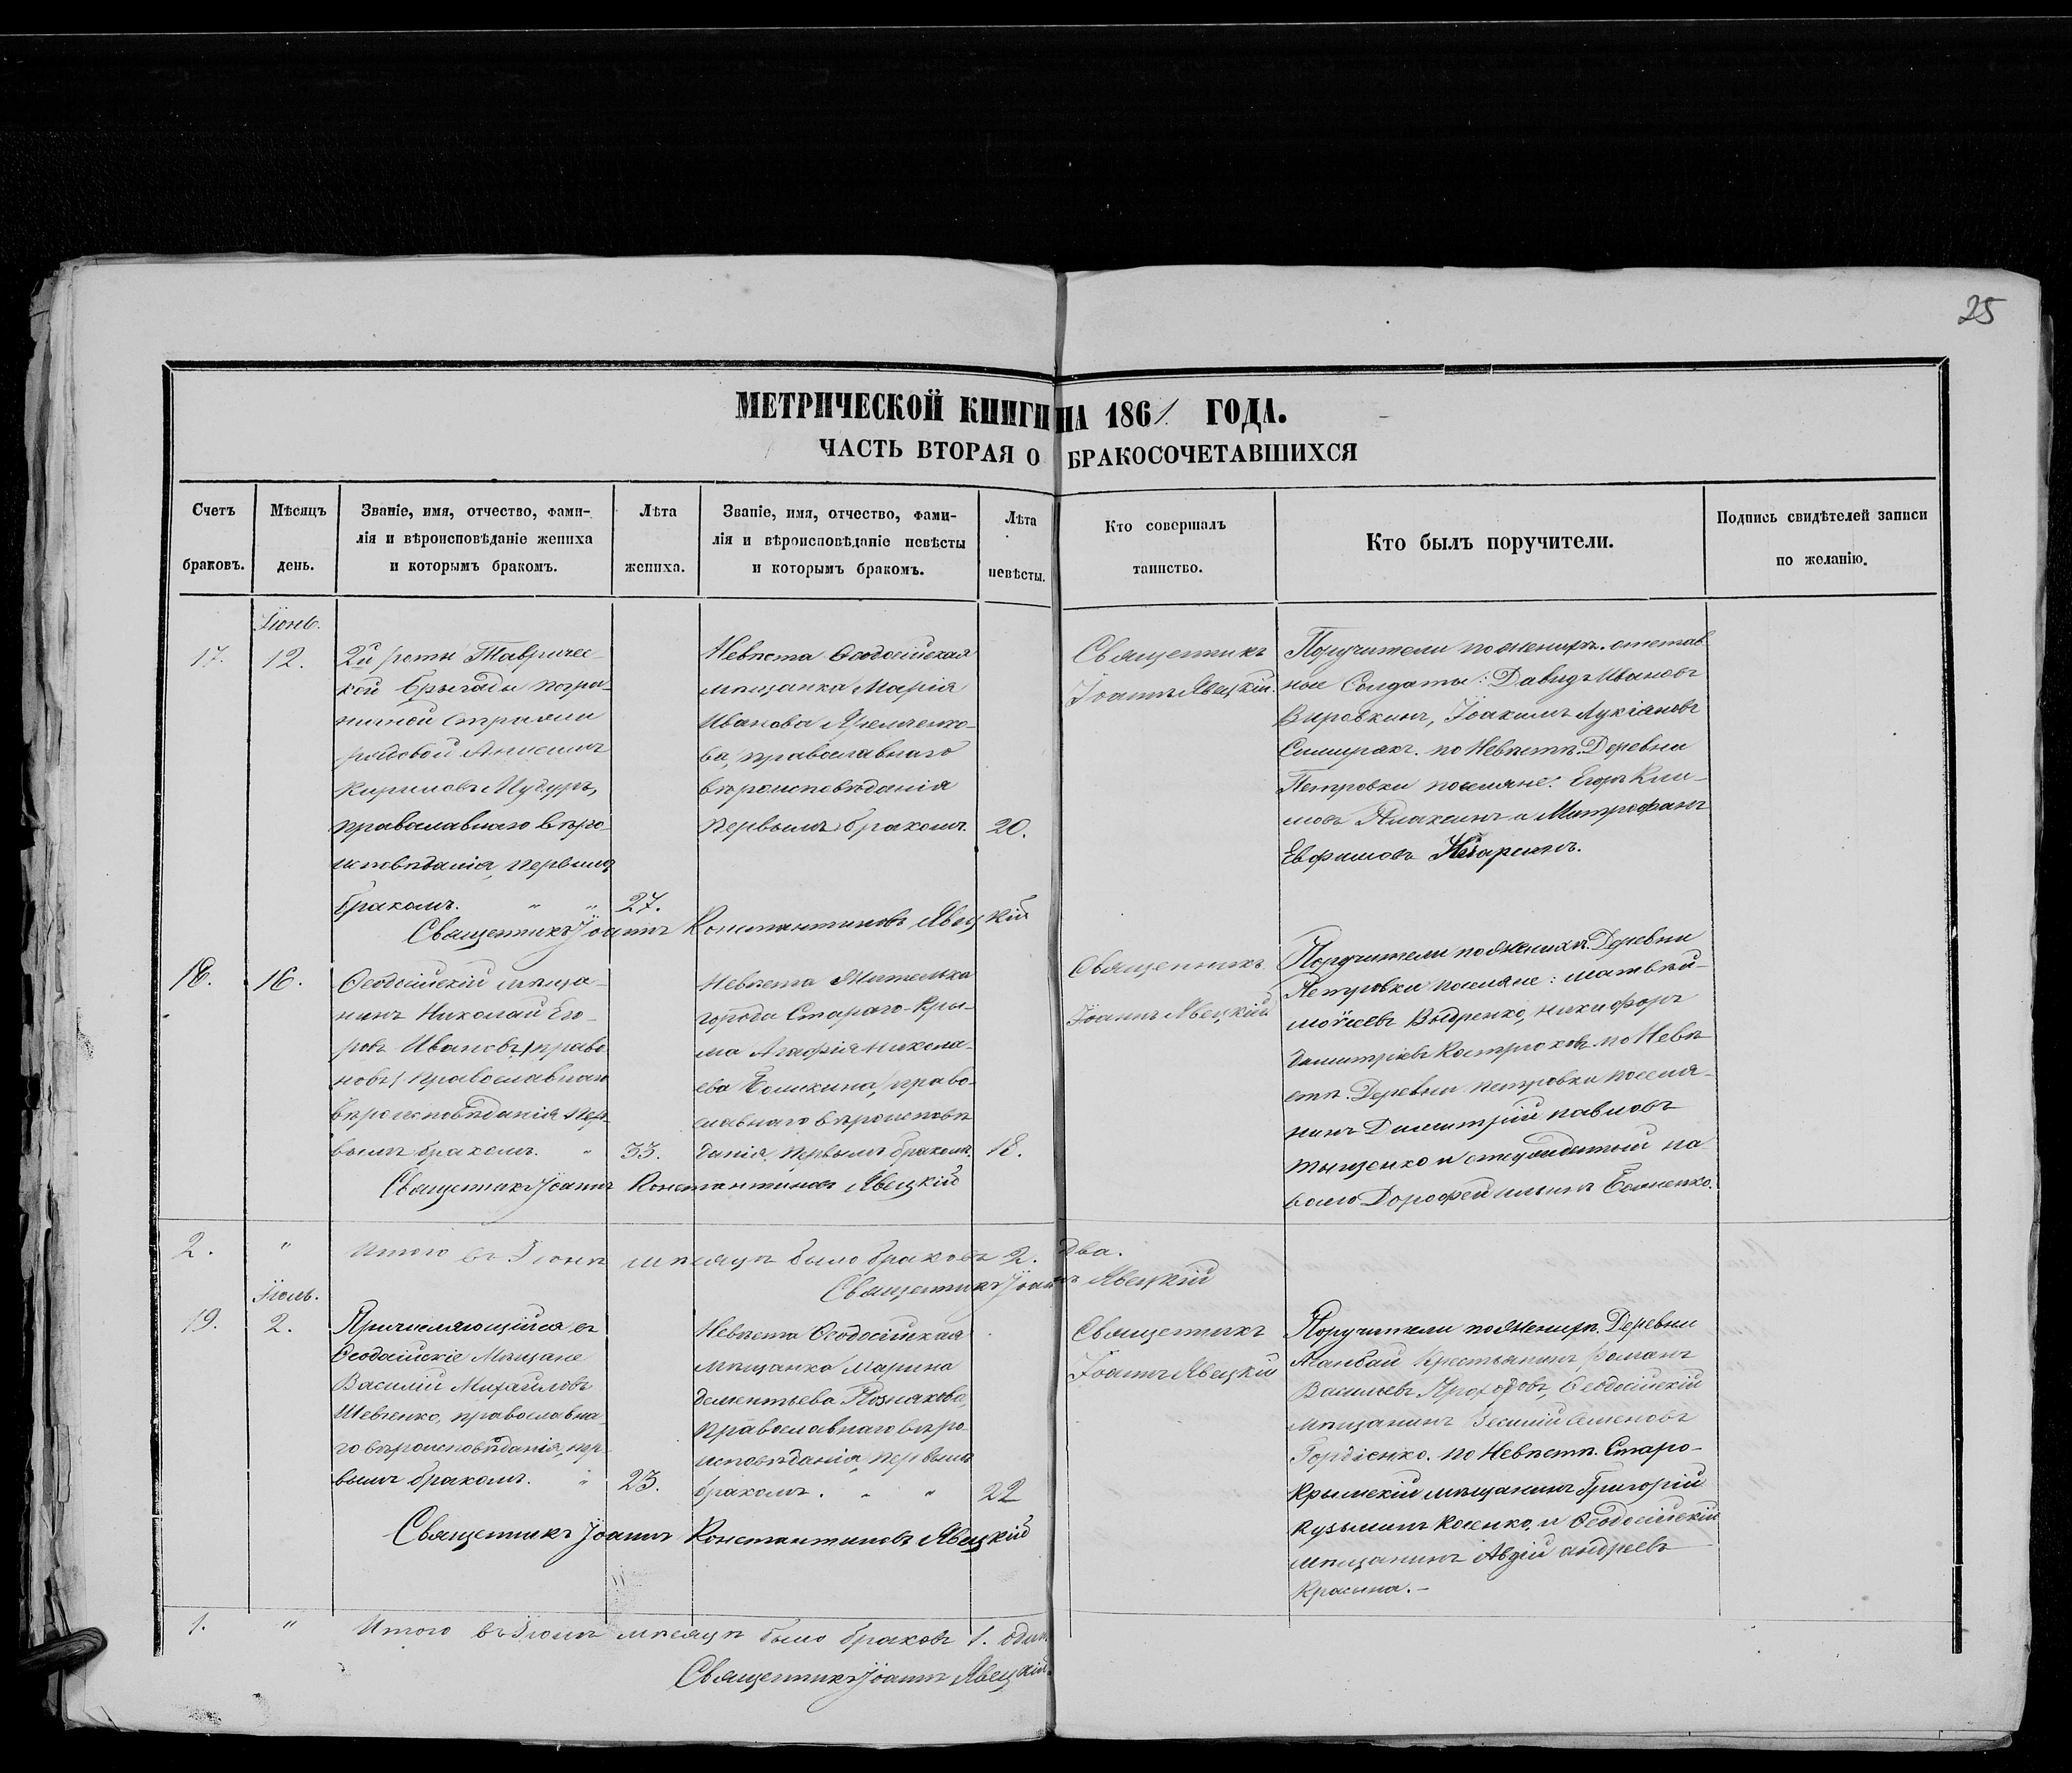 25
МЕТРИЧЕСКОЙ КНИГИ НА 1861. ГОДА.
ЧАСТЬ ВТОРАЯ О БРАКОСОЧЕТАВШИХСЯ
Счетъ браковъ.
Мѣсяцъ день.
Званіе, имя, отчество, фами-
лія и вѣроисповѣданіе жениха
и которымъ бракомъ.
Лѣта жениха.
Званіе, имя, отчество, фами-
лія и вѣроисповѣданіе невѣсты
и которымъ бракомъ.
Лѣта невѣсты.
Кто совершалъ
таинство.
Кто былъ поручители.
Подпись свидѣтелей записи
по желанію.
Іюнь.
17.
12.
2й роты Тавричес-
кой бригады погра-
ничной стражи
рядовой Анисимъ
Кириловъ
православнаго вѣро-
исповѣданія, первымъ
бракомъ. " " 27.
Невѣста Ѳеодосійская
мѣщанка Марія
Иванова
ва, православнаго
вѣроисповѣданія
первымъ бракомъ. 20.
Священникъ
Іоаннъ Явецкій.
Поручители по женихѣ. отстав
ные Солдаты: Давидъ Ивановъ
Іоакимъ Лукіановъ
по Невѣстѣ. Деревни
Петровки поселяне: Егоръ Кли-
мовъ и Митрофанъ
Евфимовъ
Священникъ Іоаннъ Константиновъ Явецкій
18.
16.
Ѳеодосійскій мѣща-
нинъ Николай Его-
ровъ Ивановъ
православнаго
вѣроисповѣданія пер-
вымъ бракомъ. " 33.
Невѣста Жителька
города Стараго-Кры-
ма Агафія Никола-
ева право-
славнаго вѣроисповѣ
данія, первымъ бракомъ. 18.
Священникъ
Іоаннъ Явецкій
Поручители по Женихѣ. Деревни
Петровки поселяне: Матвѣй
никифоръ
Димитріевъ Костроховъ. по Невѣ
стѣ. Деревни петровки поселя-
нинъ Димитрій павловъ
Дорофей
Священникъ Іоаннъ Константиновъ Явецкій
2. " Итого въ Іюнѣ мѣсяцѣ было браковъ 2. два.
Священникъ Іоаннъ Явецкій
Іюль.
19.
2.
Причисляющійся въ
Ѳеодосійскіе Мѣщане
Василій Михайловъ
Шевченко, православна-
го вѣроисповѣданія, пер-
вымъ бракомъ. " 23.
Невѣста Ѳеодосійская
мѣщанка Марина
дементьева Познякова,
православнаго вѣро-
исповѣданія, первымъ
бракомъ. " " 22
Священникъ
Іоаннъ Явецкій
Поручители по Женихѣ. Деревни
Крестьянинъ Романъ
Васильевъ Прохоровъ, Ѳеодосійскій
мѣщанинъ Семеновъ
Гордіенко. по Невѣстѣ. Старо-
крымскій мѣщанинъ Григорій
Кузьминъ Косенко, и Ѳеодосійскій
мѣщанинъ Авдій андреевъ
Красина.-
Священникъ Іоаннъ Константиновъ Явецкій
1. " Итого въ Іюлѣ мѣсяцѣ было браковъ 1. одинъ
Священникъ Іоаннъ Явецкій.